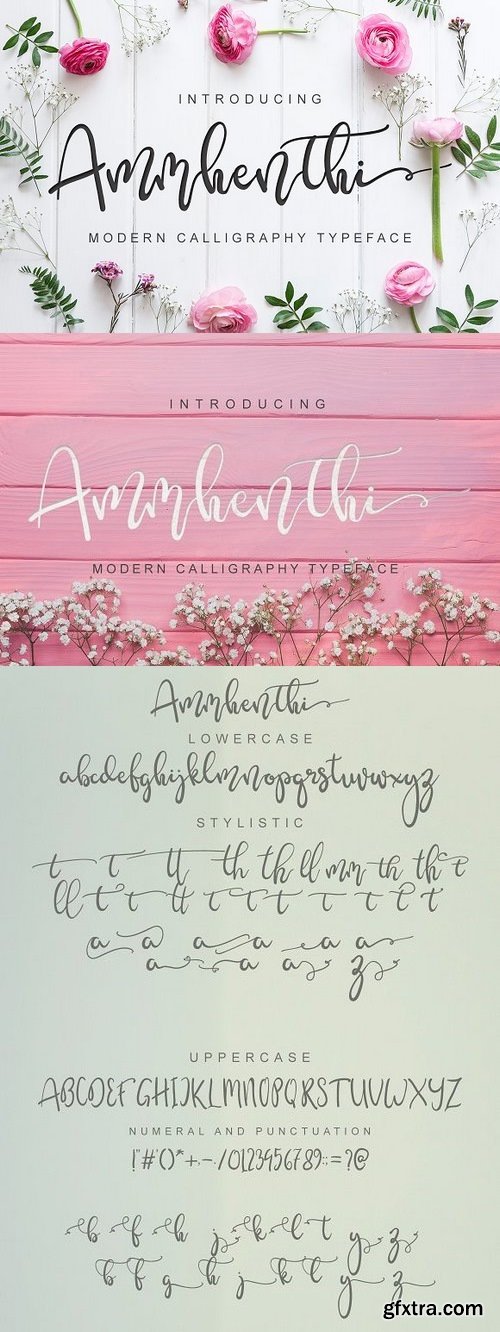 INTRODUCING
Ammhenthi
MODERN CALLIGRAPHY TYPEFACE
INTRODUCING
Ammhenthi
MODERN CALLIGRAPHY TYPEFACE
Ammhenthi
LOWERCASE
abcdefghijklmnopqrstuvwxyz
STYLISTIC
t t tt th th ll mm th th t
ll t t tt t t t t t t t
a a a a a a
a a a z
UPPERCASE
ABCDEFGHIJKLMNOPQRSTUVWXYZ
NUMERAL AND PUNCTUATION
!"#'()*+,-./0123456789:;=?@
b f h j k l t y z
b f g h j k t y z
gfxtra.com